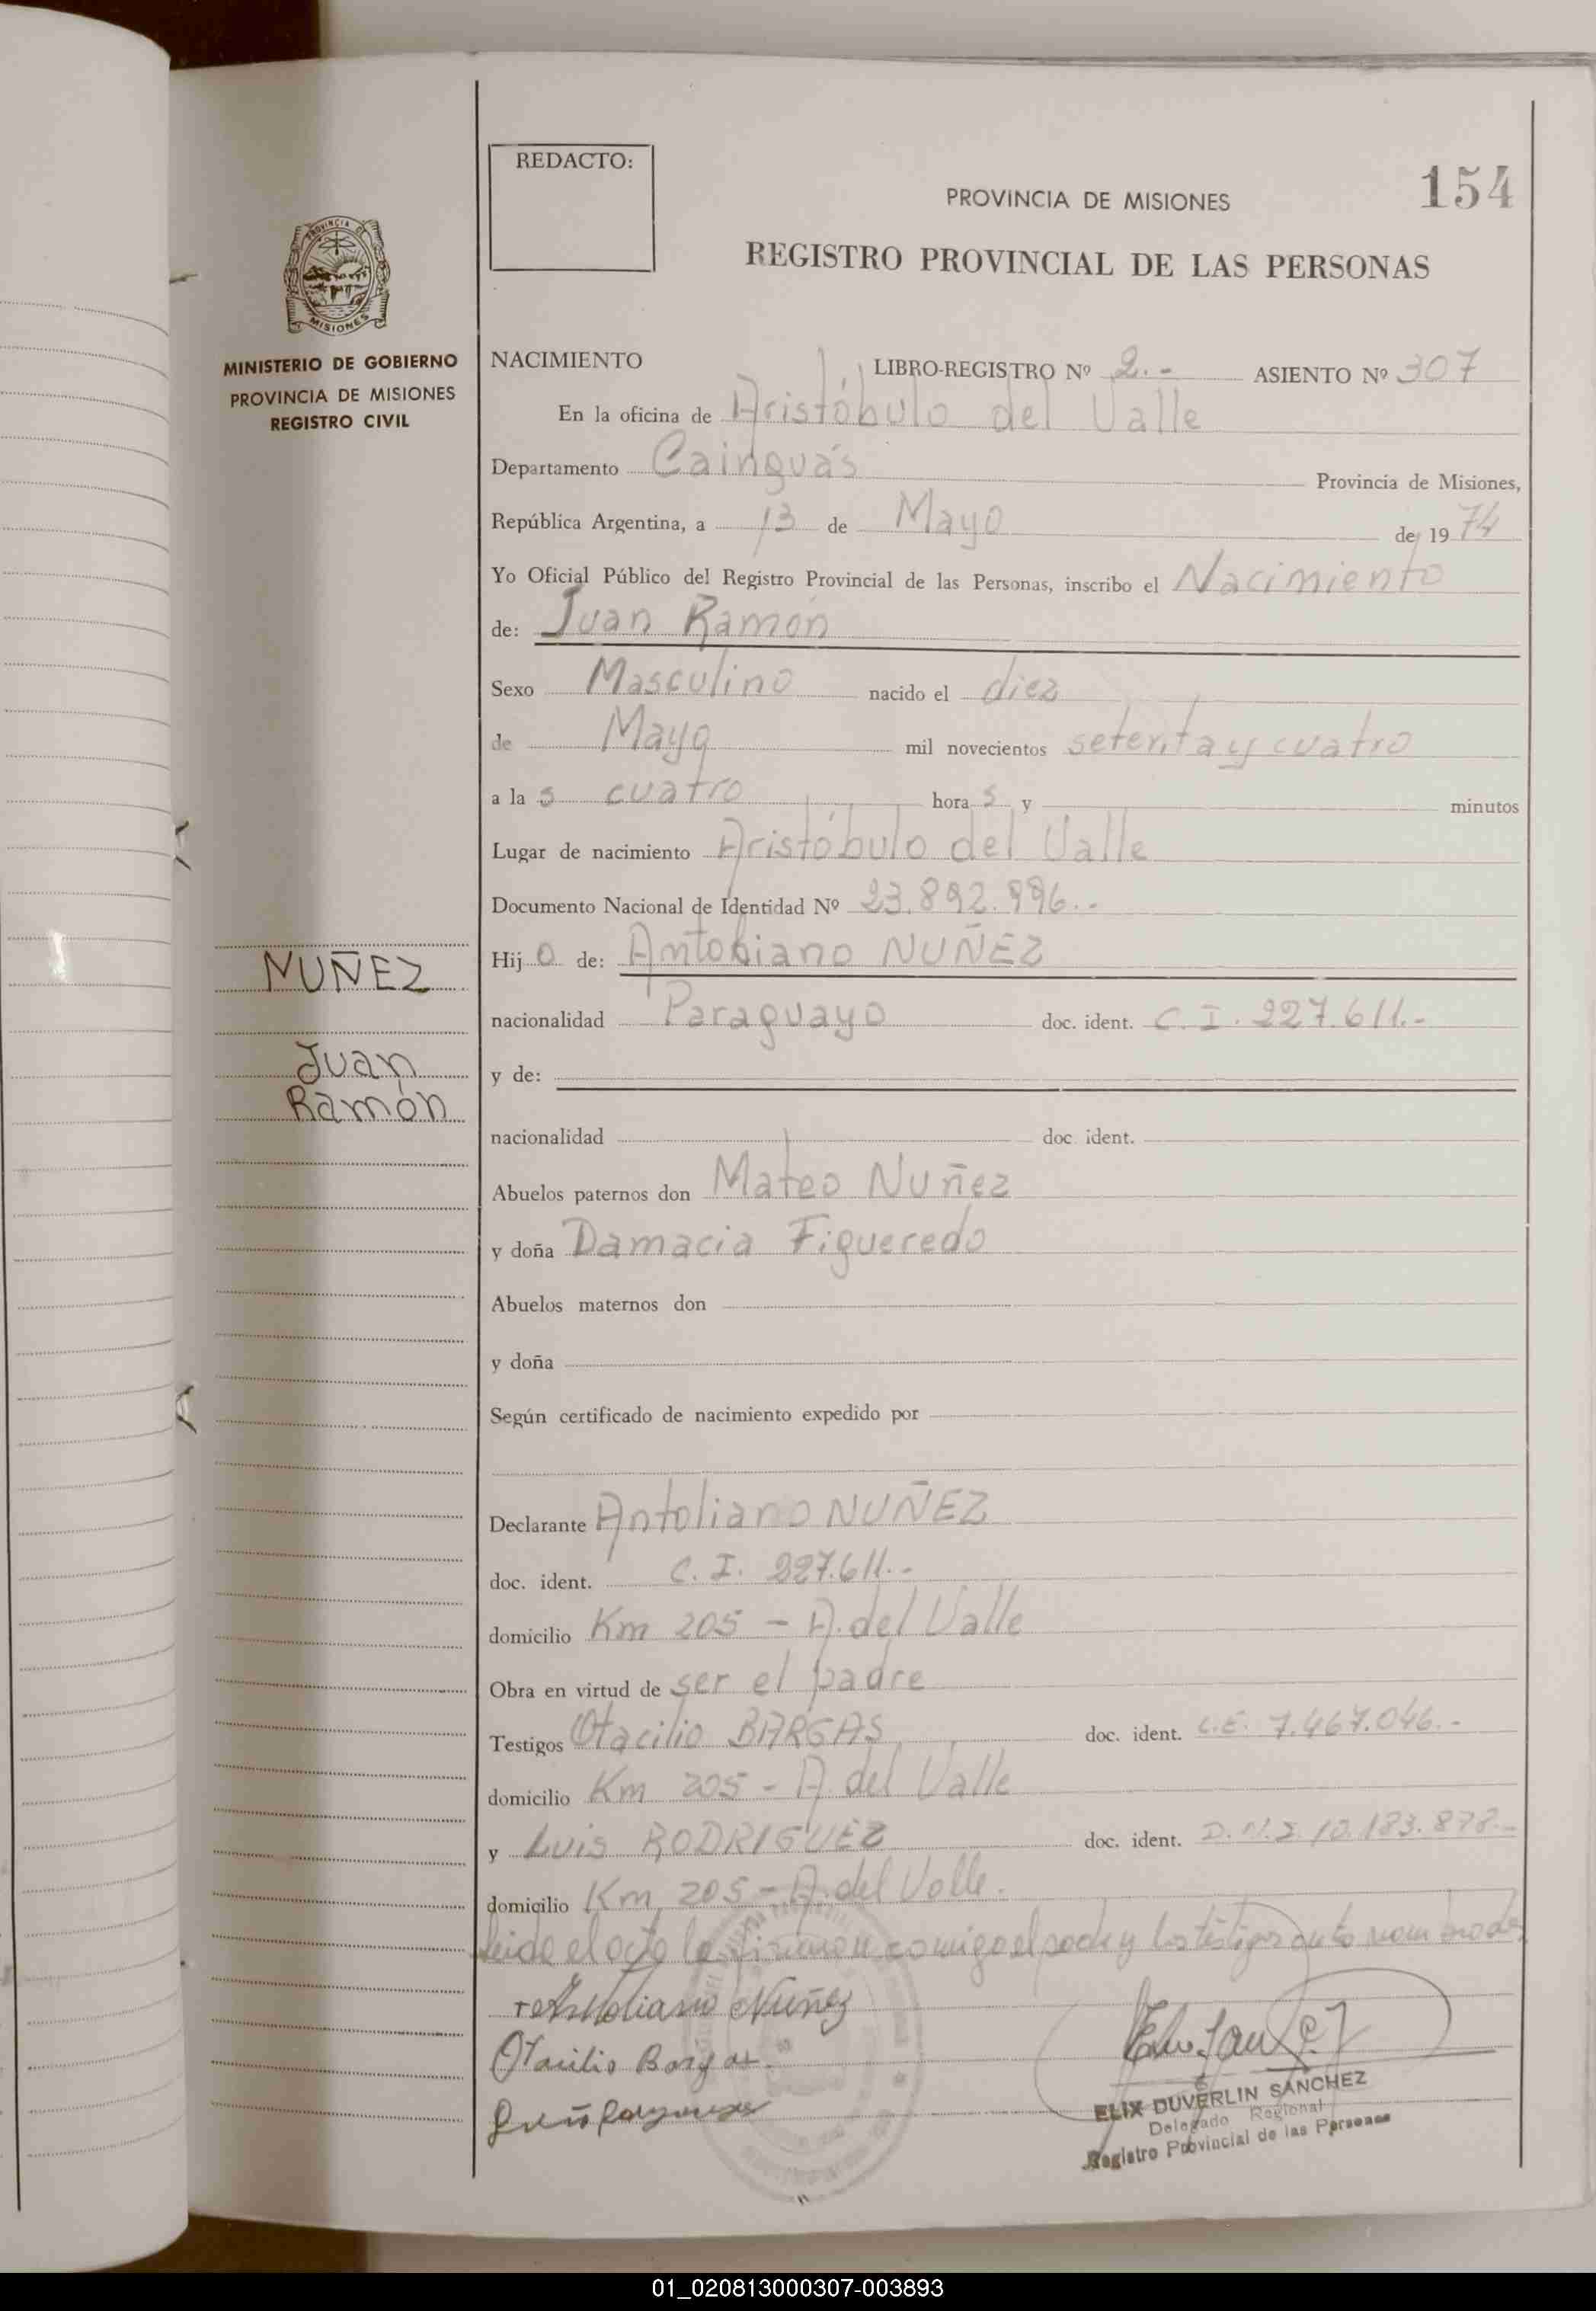 REDACTO:
PROVINCIA DE MISIONES
154
REGISTRO PROVINCIAL DE LAS PERSONAS
PROVINCIA DE
MISIONES
MINISTERIO DE GOBIERNO
PROVINCIA DE MISIONES
REGISTRO CIVIL
NUÑEZ
Juan
Ramón
NACIMIENTO LIBRO-REGISTRO Nº 2.- ASIENTO Nº 307
En la oficina de Aristóbulo del Valle
Departamento Cainguás Provincia de Misiones,
República Argentina, a 13 de Mayo de 1974
Yo Oficial Público del Registro Provincial de las Personas, inscribo el Nacimiento
de: Juan Ramón
Sexo Masculino nacido el diez
de Mayo mil novecientos setenta y cuatro
a las cuatro horas y minutos
Lugar de nacimiento Aristóbulo del Valle
Documento Nacional de Identidad Nº 23.892.996.-
Hijo de: Antoliano NUÑEZ
nacionalidad Paraguayo doc. ident. C.I. 227.611.-
y de:
nacionalidad doc. ident.
Abuelos paternos don Mateo Nuñez
y doña Damacia Figueredo
Abuelos maternos don
y doña
Según certificado de nacimiento expedido por
Declarante Antoliano NUÑEZ
doc. ident. C.I. 227.611.-
domicilio Km 205 - A. del Valle
Obra en virtud de ser el padre
Testigos Otacilio BARGAS doc. ident. L.E. 7.467.046.-
domicilio Km 205 - A. del Valle
y Luis RODRIGUEZ doc. ident. D.N.I. 10.183.878.-
domicilio Km 205 - A. del Valle.
Leido el acta la firman conmigo el padre y los testigos antes nombrados
Antoliano Nuñez
Otacilio Bargas.
ELIX DUVERLIN SANCHEZ
Delegado Regional
Registro Provincial de las Personas
01_020813000307-003893